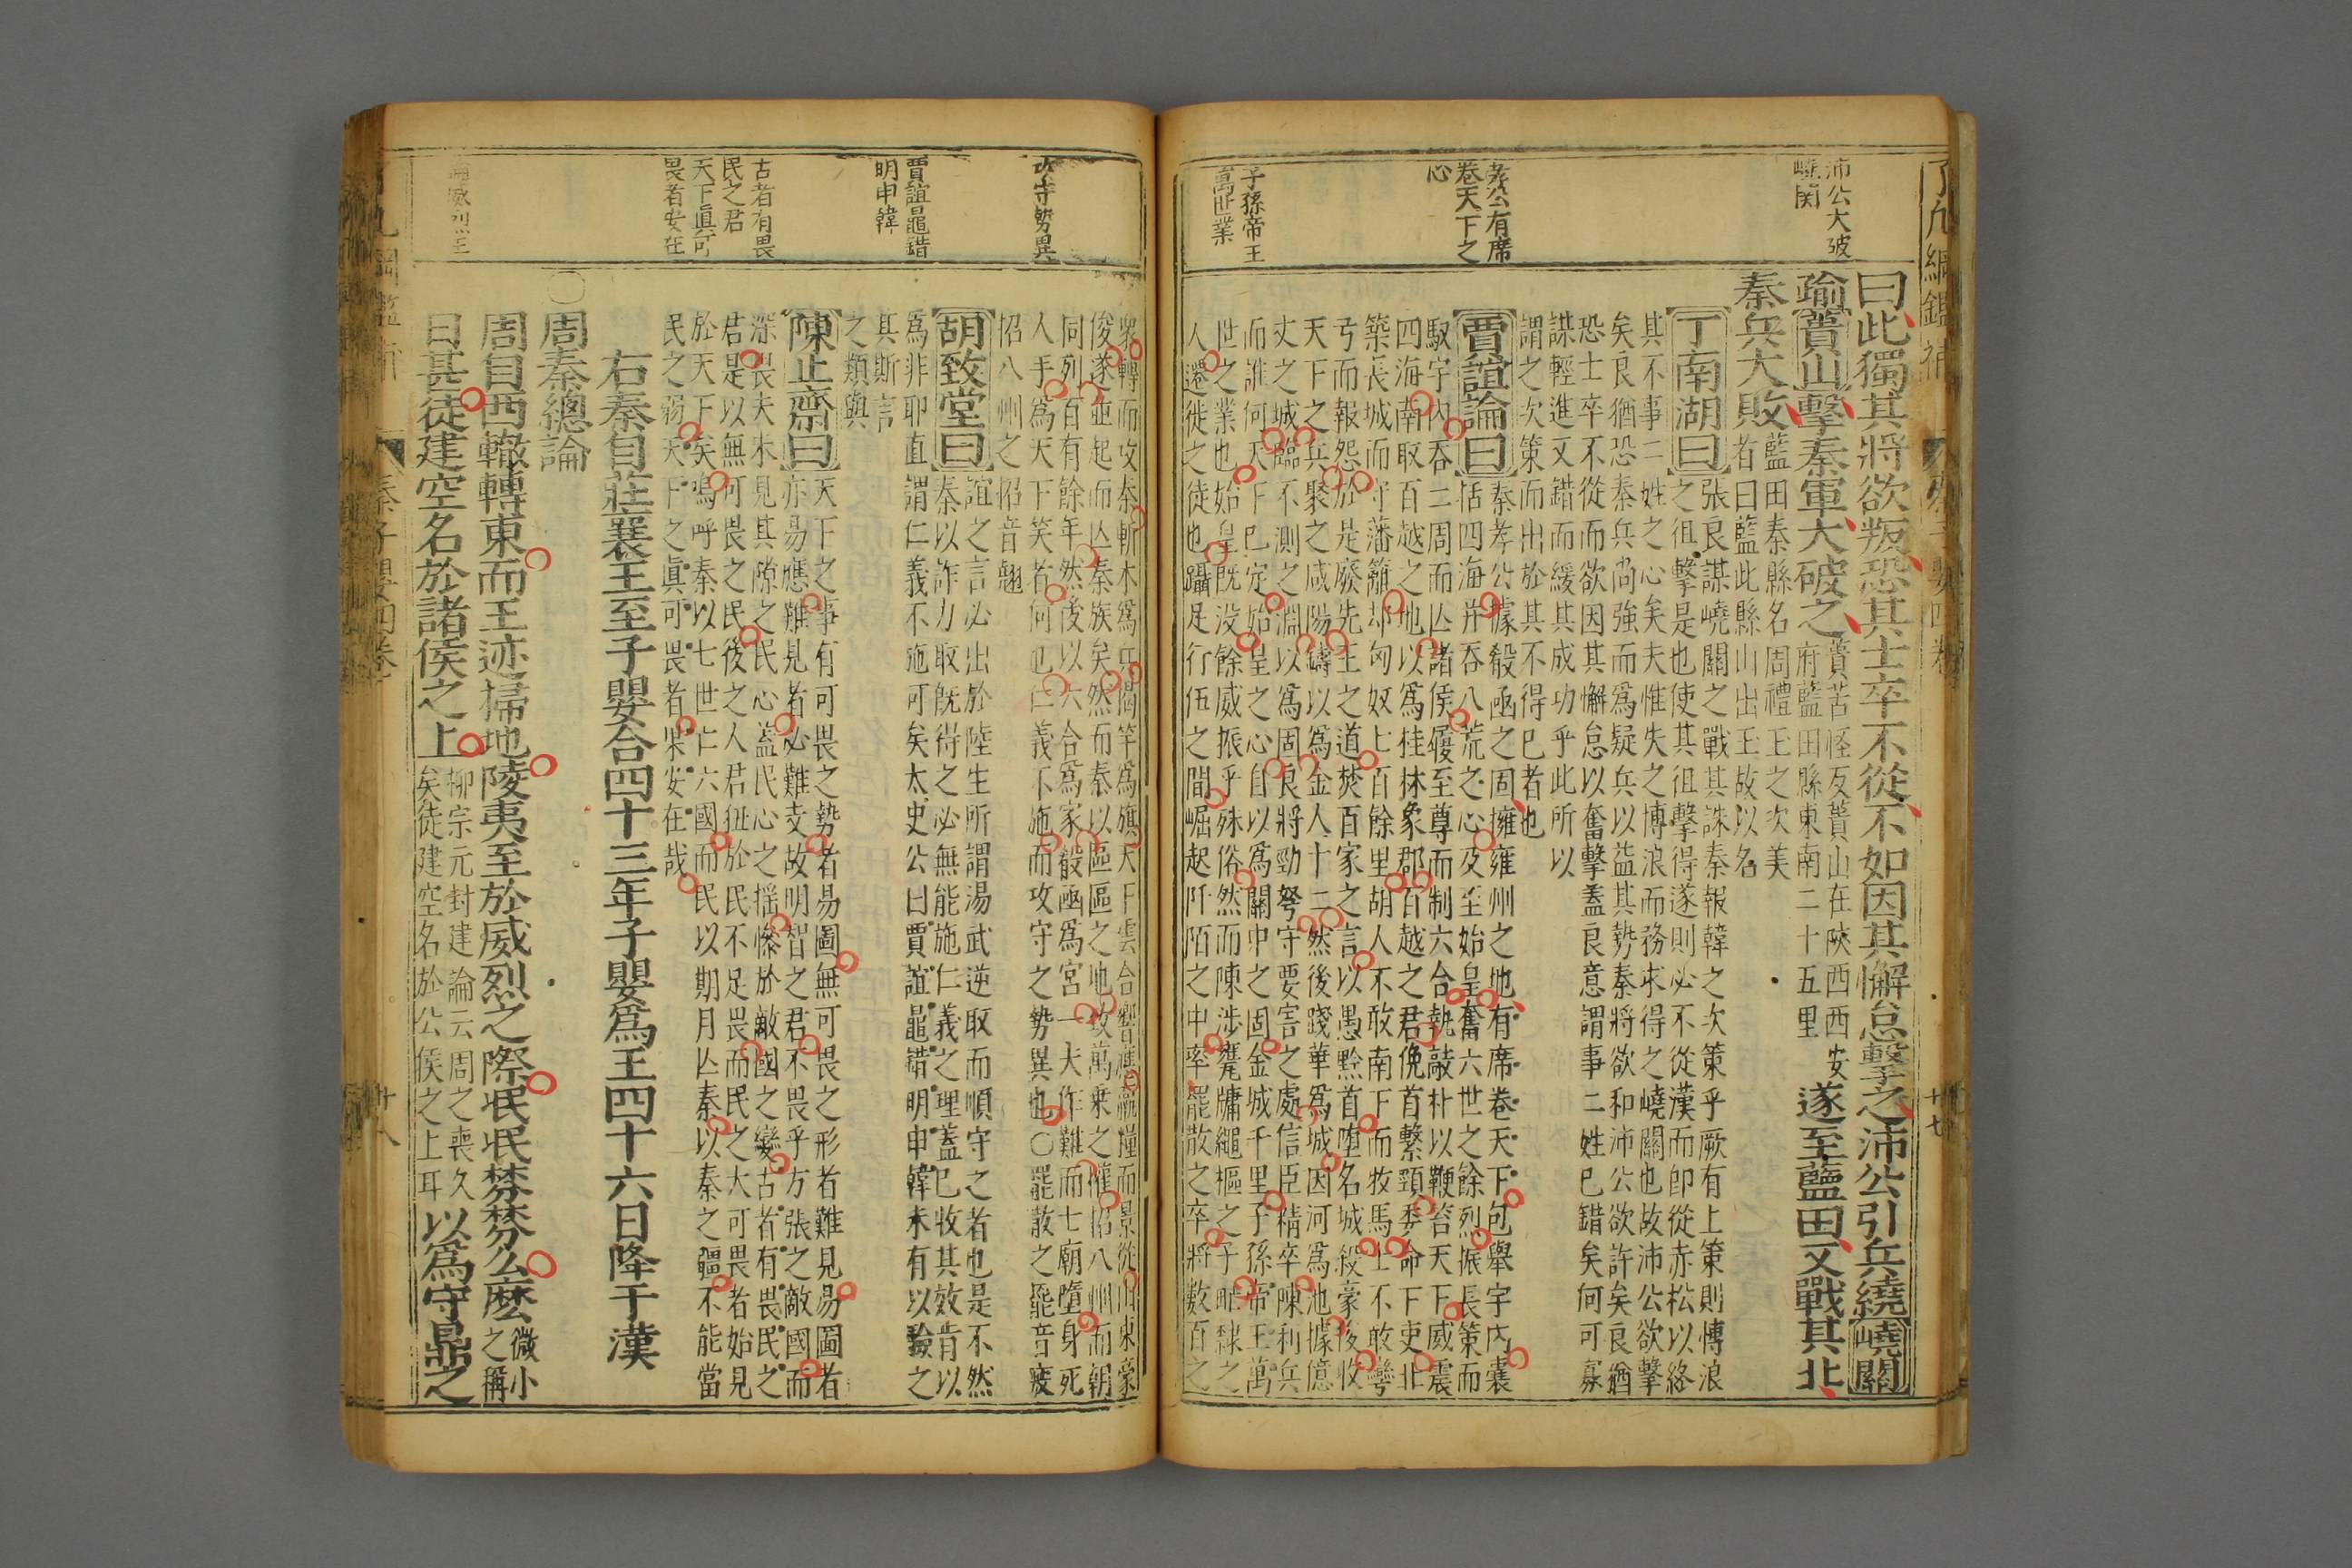 沛公大破
嶢関
孝公有席
卷天下之
心
子孫帝王
萬世業
曰此獨其將欲叛恐其士卒不從不如因其懈怠擊之沛公引兵繞嶢關
踰蕢山擊秦軍大破之
蕢苦怪反蕢山在陜西西安
府藍田縣東南二十五里
遂至藍田又戰其北
秦兵大敗
藍田秦縣名周禮玉之次美
者曰藍此縣山出玉故以名
丁南湖曰
張良謀嶢關之戰其誅秦報韓之次策乎厥有上策則博浪
之徂擊是也使其徂擊得遂則必不從漢而即從赤松以終
其不事二姓之心矣夫惟失之博浪而務求得之嶢關也故沛公欲擊
矣良猶恐秦兵尚強而爲疑兵以益其勢秦將欲和沛公欲許矣良猶
恐士卒不從而欲因其懈怠以奮擊蓋良意謂事二姓已錯矣何可寡
謀輕進又錯而緩其成功乎此所以
謂之次策而出於其不得已者也
賈誼論曰
秦孝公據殽函之固擁雍州之地有席卷天下包舉宇內囊
括四海并吞八荒之心及至始皇奮六世之餘烈振長策而
馭宇內吞二周而亾諸侯履至尊而制六合執敲朴以鞭笞天下威震
四海南取百越之地以爲桂林象郡百越之君俛首繫頸委命下吏北
築長城而守藩籬却匈奴七百餘里胡人不敢南下而牧馬士不敢彎
弓而報怨於是廢先王之道焚百家之言以愚黔首墮名城殺豪俊收
天下之兵聚之咸陽鑄以爲金人十二然後踐華爲城因河爲池據億
丈之城臨不測之淵以爲固良將勁弩守要害之處信臣精卒陳利兵
而誰何天下已定始皇之心自以爲關中之固金城千里子孫帝王萬
世之業也始皇既沒餘威振乎殊俗然而陳涉甕牖繩樞之子甿隸之
人遷徙之徒也躡足行伍之間崛起阡陌之中率罷散之卒將數百之
攻守勢異
賈誼鼂錯
明申韓
古者有畏
民之君
天下眞可
畏者安在
衆轉而攻秦斬木爲兵揭竿爲旗天下雲合響應贏糧而景從山東豪
俊遂並起而亾秦族矣然而秦以區區之地攻萬乘之權招八州而朝
同列百有餘年然後以六合爲家殽函爲宮一夫作難而七廟墮身死
人手爲天下笑者何也仁義不施而攻守之勢異也○罷散之罷音疲
招八州之招音翹
胡致堂曰
誼之言必出於陸生所謂湯武逆取而順守之者也是不然
秦以詐力取既得之必無能施仁義之理蓋已收其效肯以
爲非耶直謂仁義不施可矣太史公曰賈誼鼂錯明申韓未有以驗之
其斯言
之類與
陳止齋曰
天下之事有可畏之勢者易圖無可畏之形者難見易圖者
亦易應難見者必難支故明智之君不畏乎方張之敵國而
深畏夫未見其隙之民心蓋民心之搖慘於敵國之變古者有畏民之
君是以無可畏之民後之人君狃於民不足畏而民之大可畏者始見
於天下矣嗚呼秦以七世亡六國而民以期月亾秦以秦之疆不能當
民之弱天下之眞可畏者果安在哉
右秦自莊襄王至子嬰合四十三年子嬰爲王四十六日降于漢
周秦總論
周自西轍轉東而王迹掃地陵夷至於威烈之際泯泯棼棼么麽
微小
之稱
曰甚徒建空名於諸侯之上
柳宗元封建論云周之喪久
矣徒建空名於公侯之上耳
以爲守鼎之
秦子嬰四卷
十八